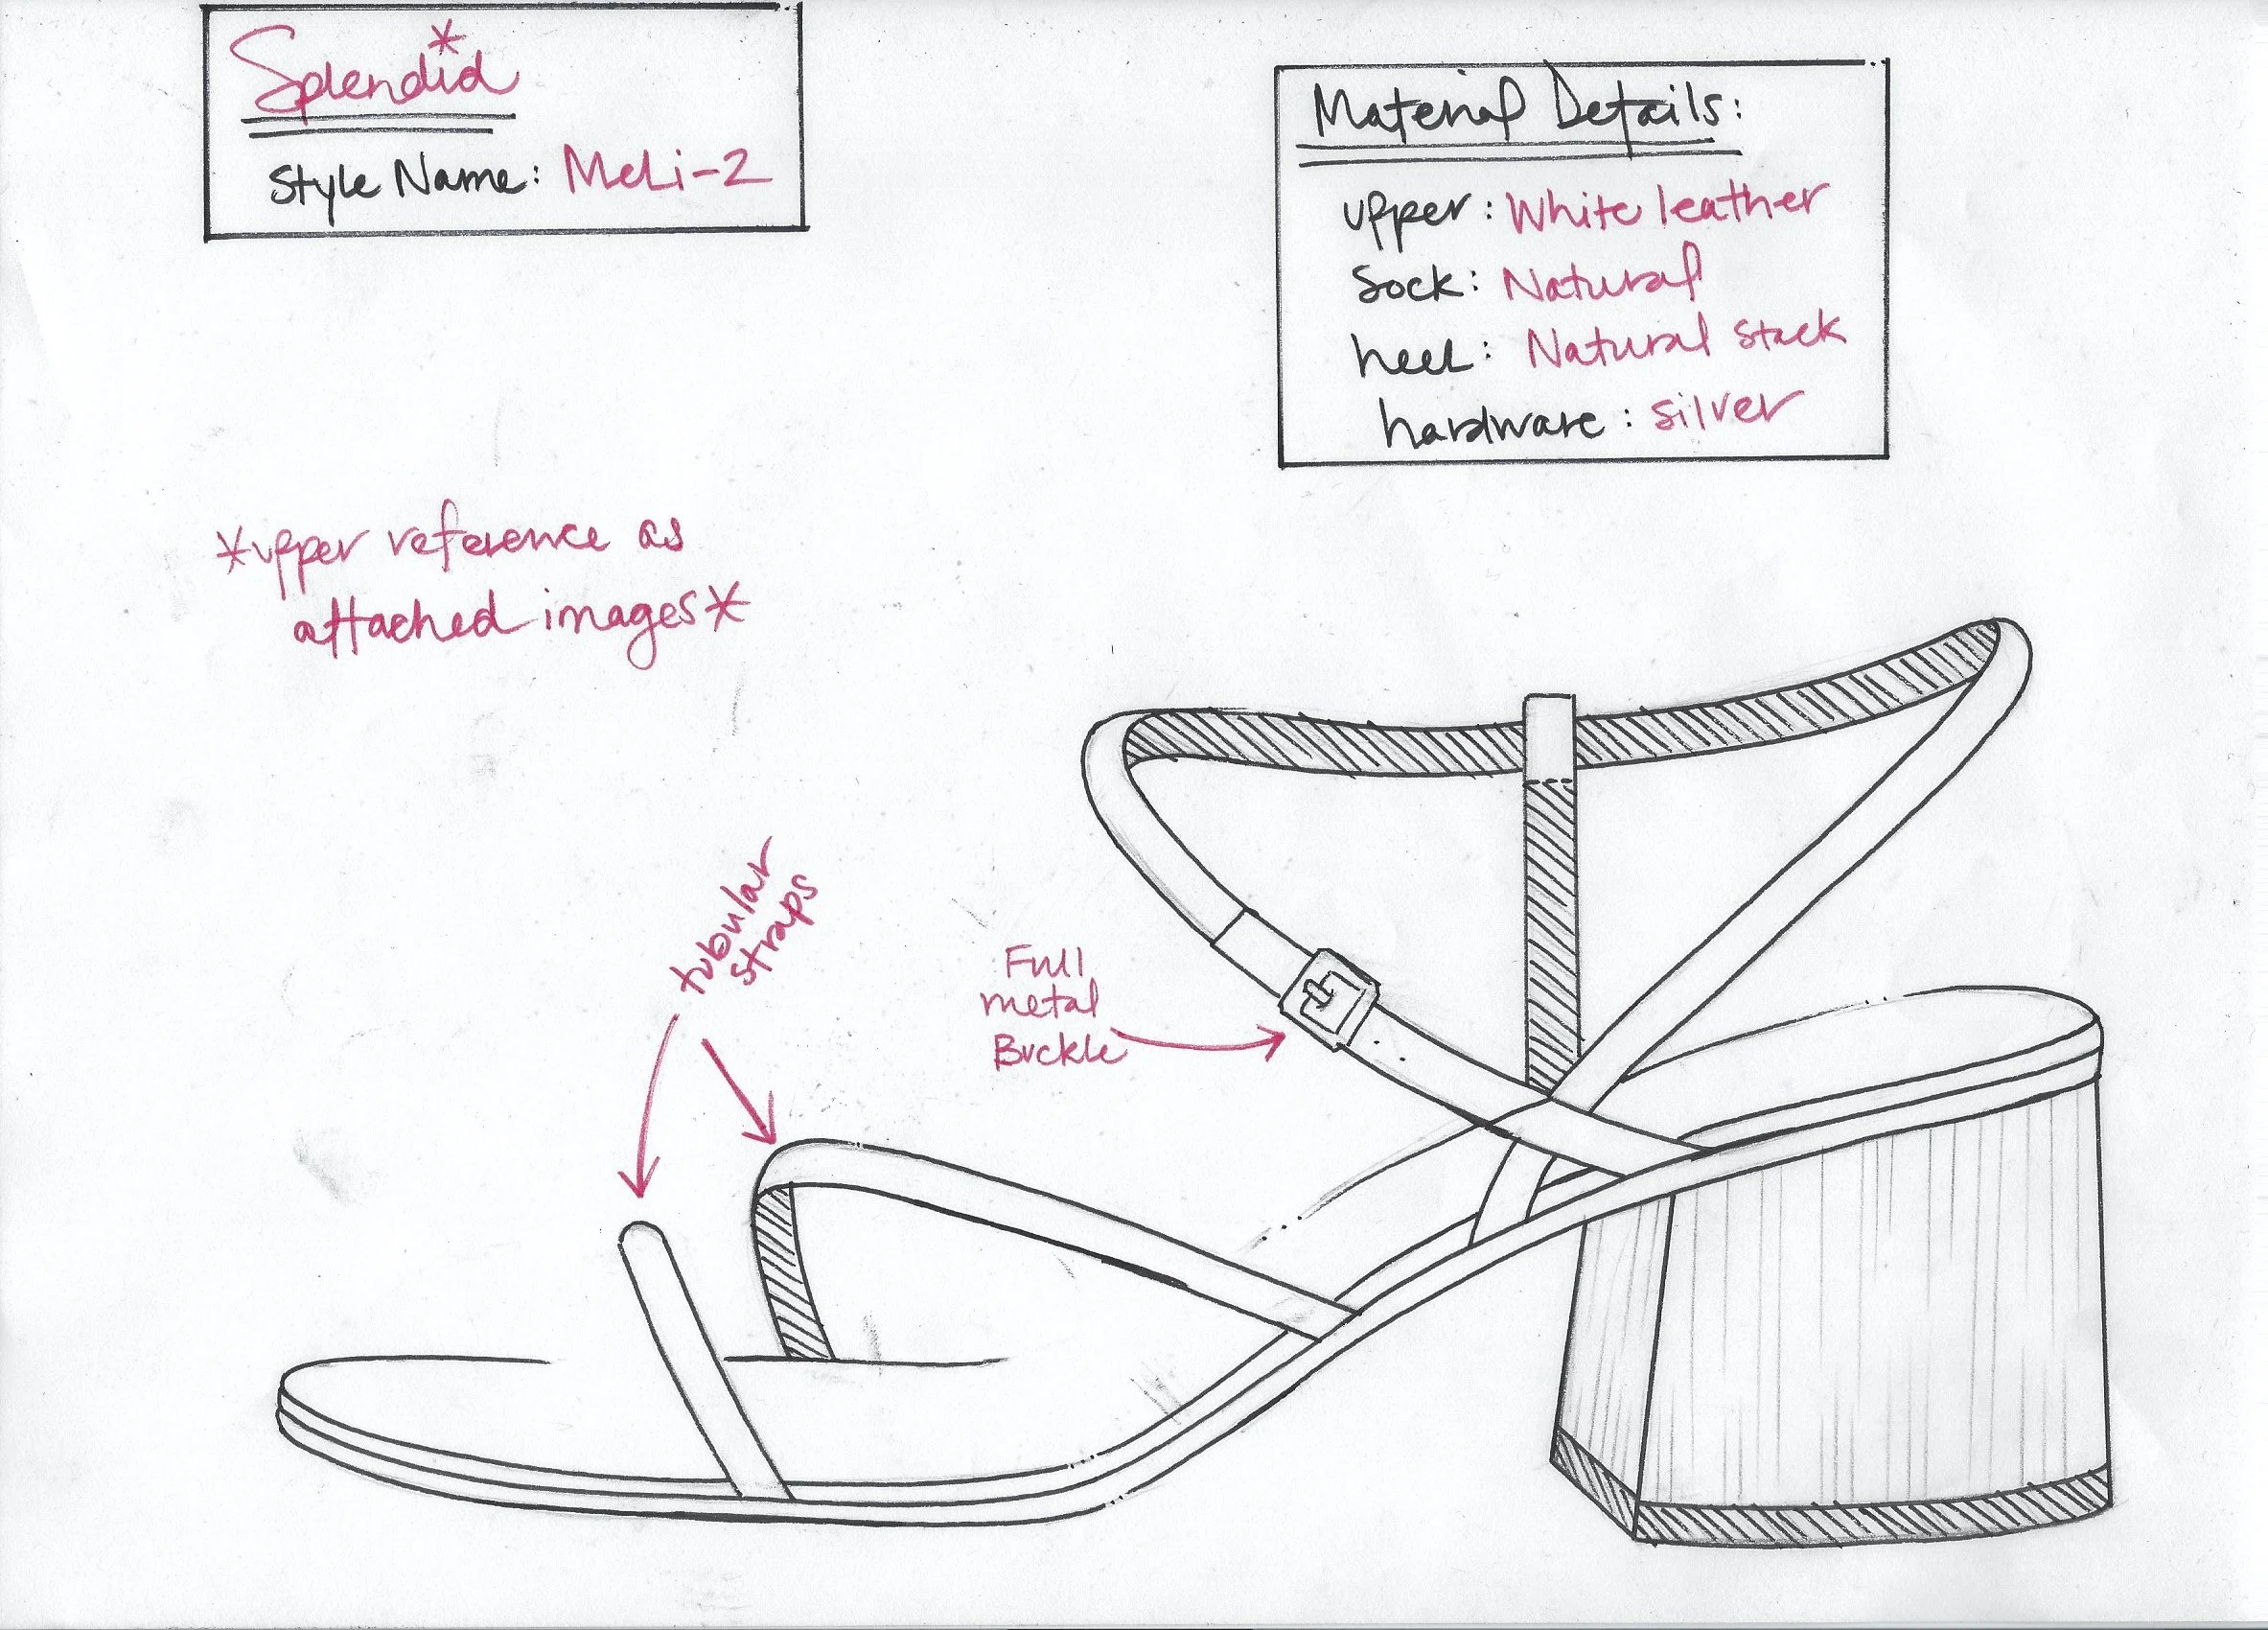 Splendid*
Style Name: MeLi-2
Material Details:
upper: White leather
Sock: Natural
heel: Natural stack
hardware: silver
*upper reference as
attached images*
tubular
straps
Full
metal
Buckle